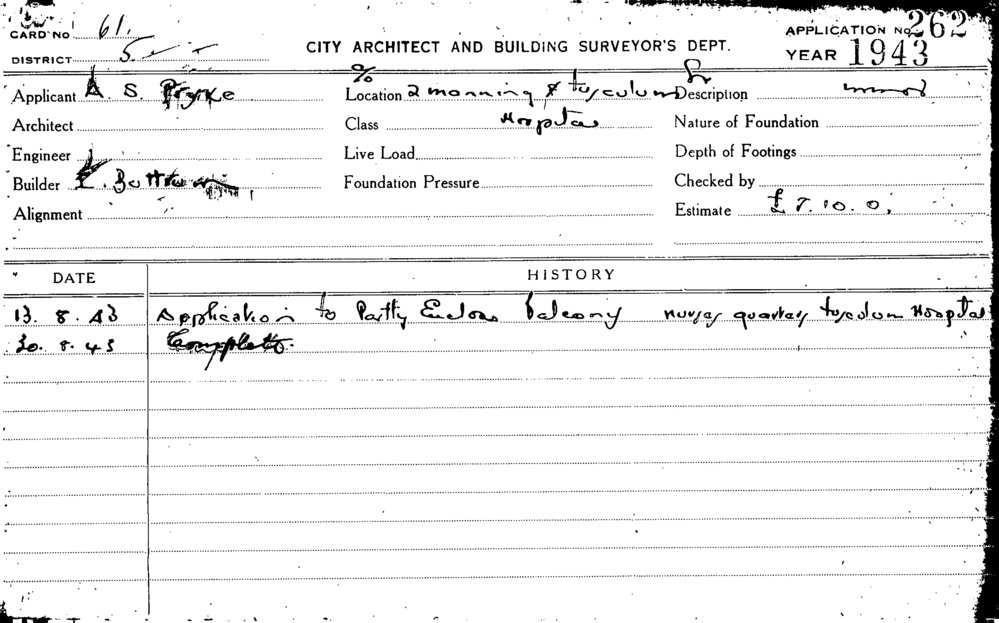 CARD No 61.
APPLICATION No 262
DISTRICT 5
CITY ARCHITECT AND BUILDING SURVEYOR'S DEPT.
YEAR 1943
Applicant A. S. Pryke
Location % 2 manning & tusculum Sr
Description minor
Architect
Class Hospital
Nature of Foundation
Engineer
Live Load
Depth of Footings
Builder
Foundation Pressure
Checked by
Alignment
Estimate £7.10.0.
DATE HISTORY
13. 8. 43 Application to Partly Enclose balcony nurses quarters tusculum Hospital
30. 8. 43 Complete.